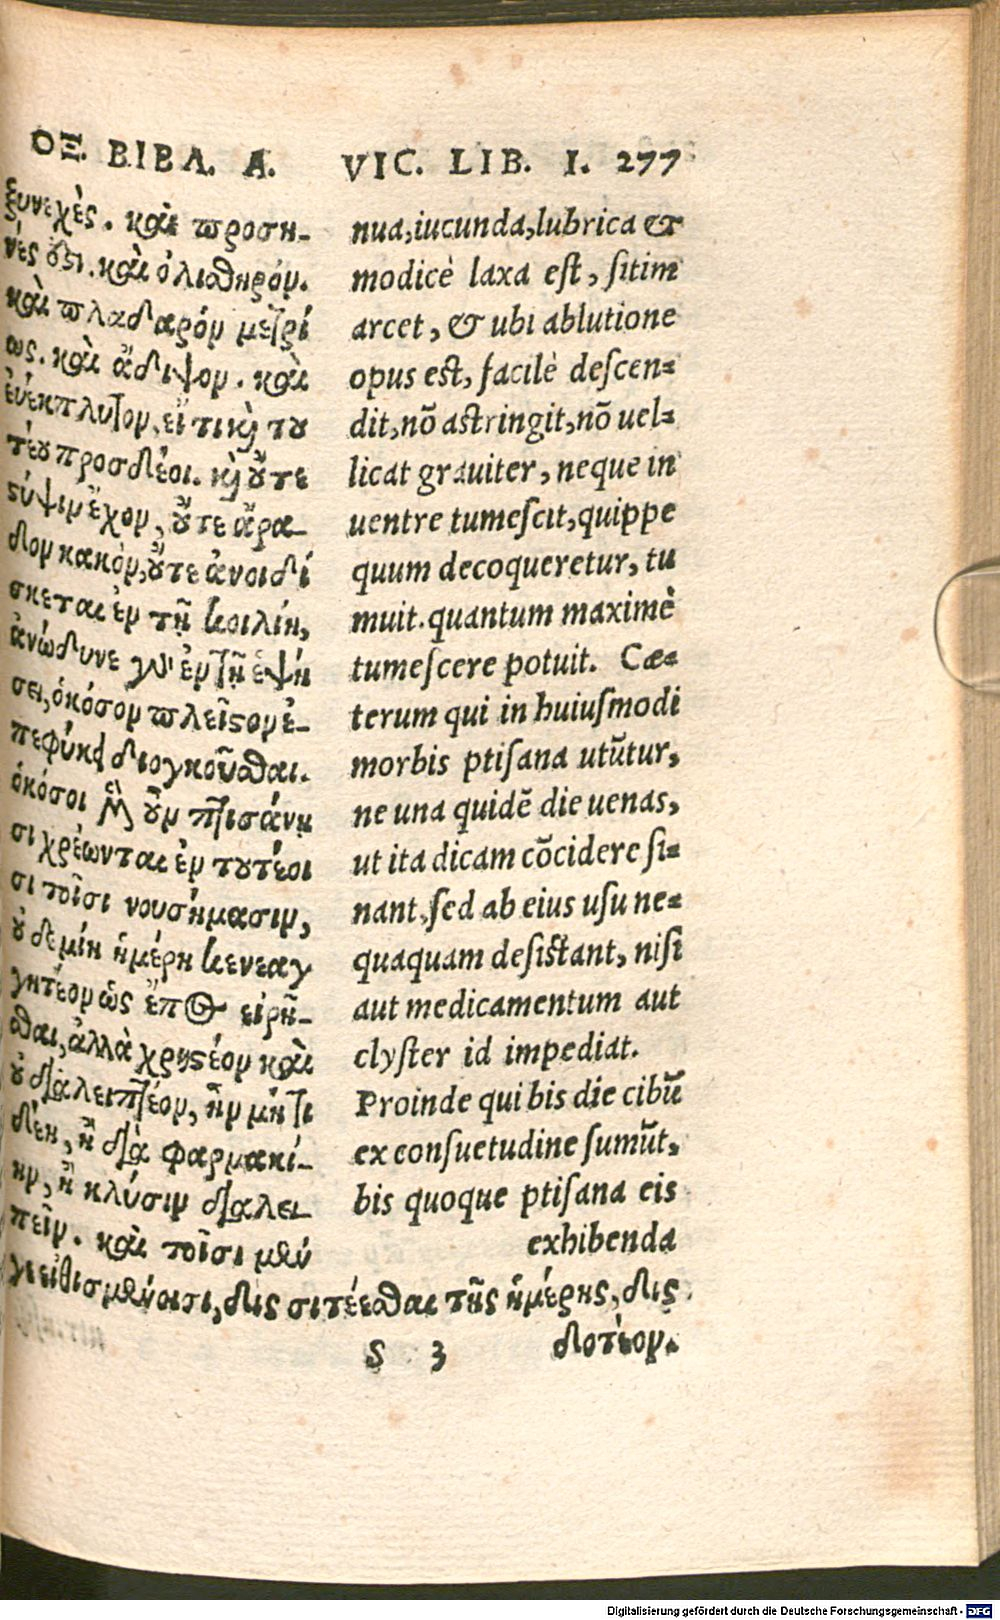 ΟΞ. ΒΙΒΛ. Α.
ξυνεχὲς. καὶ προση-
νές ὅξι. καὶ ὀλισθηρόν.
καὶ πλαδαρόν μετρί
ως. καὶ ἄδιψον. καὶ
ἐυέκπλυτον, εἴ τι κὶ του
τέου προσδέοι. κὶ οὔτε
στύψιν ἔχον, οὔτε ἄρα-
δον κακὸν, οὔτε ἀνοιδί
σκεται ἐν τῇ κοιλίη,
ἀνώδυνε γδ ἐν τῇ ἑψή
σει, ὁκόσον πλεῖστον ἐ-
πεφύκει διογκοῦσθαι.
ὁκόσοι μὲν οὖν πτισάνη
σι χρέωνται ἐν τουτέοι
σι τοῖσι νουσήμασιν,
οὐδεμίη ἡμέρη κενεαγ
γητέον ὡς ἔπος εἰρῆ-
σθαι, ἀλλὰ χρηστέον καὶ
οὐ διαλειπτέον, ἢν μή τι
δέη, ἢ διὰ φαρμακί-
ην, ἢ κλύσιν διαλει-
πεῖν. καὶ τοῖσι μέν
γε εἰθισμένοισι, δὶς σιτέεσθαι τῆς ἡμέρης, δὶς
δοτέον.
VIC. LIB. I. 277
nua, iucunda, lubrica &
modicè laxa est, sitim
arcet, & ubi ablutione
opus est, facilè descen-
dit, nō astringit, nō uel-
licat grauiter, neque in
uentre tumescit, quippe
quum decoqueretur, tu
muit. quantum maximè
tumescere potuit. Cæ-
terum qui in huiusmodi
morbis ptisana utūtur,
ne una quidē die uenas,
ut ita dicam cōcidere si-
nant, sed ab eius usu ne-
quaquam desistant, nisi
aut medicamentum aut
clyster id impediat.
Proinde qui bis die cibū
ex consuetudine sumūt,
bis quoque ptisana eis
exhibenda
S 3
Digitalisierung gefördert durch die Deutsche Forschungsgemeinschaft - DFG